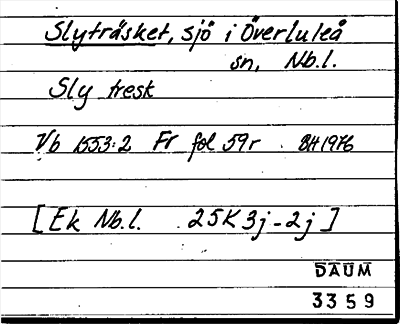 Slyträsket, sjö i Överluleå
sn, Nb.l.
Sly tresk
Vb 1553:2 Fr fol 59r. BH 1976
[Ek Nb.l. 25K 3j-2j]
DAUM
3359